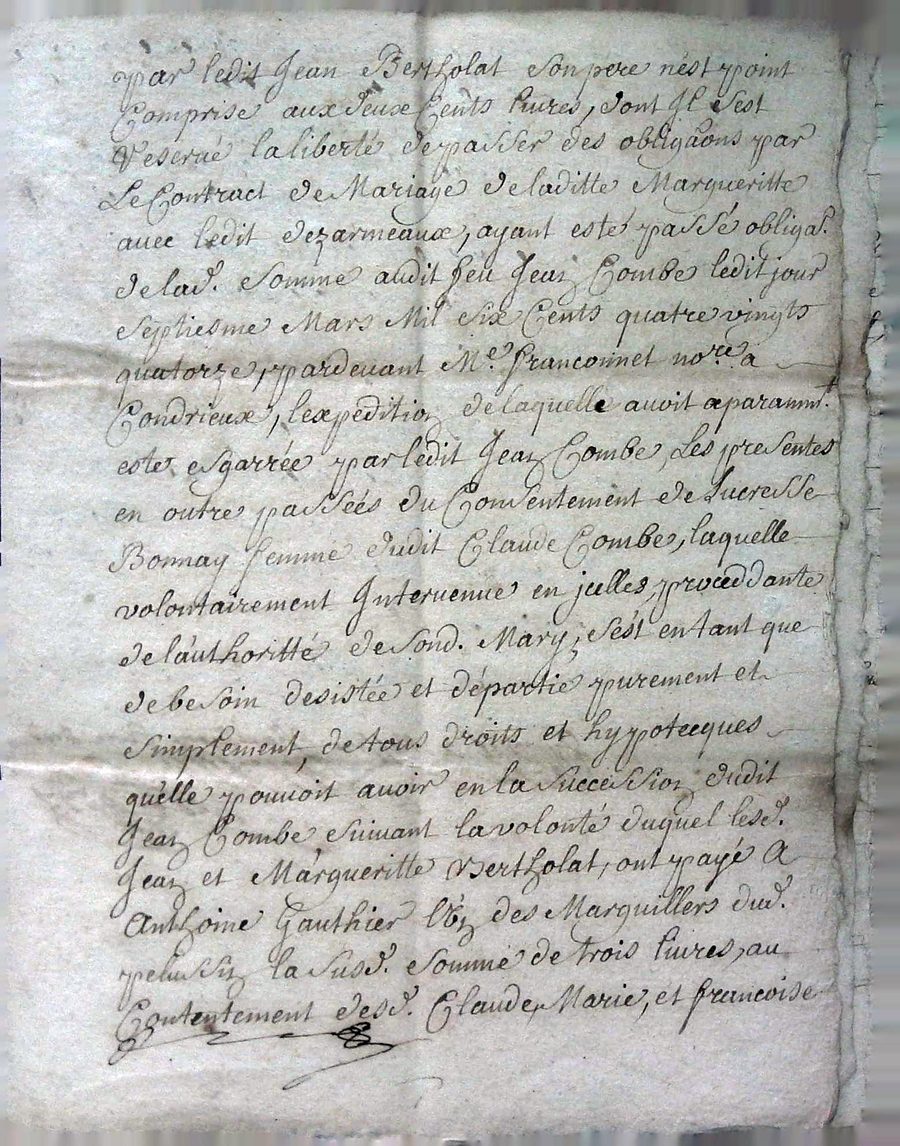 par ledit Jean Bertholat son pere n'est point
Comprise aux deux Cents livres, dont Il s'est
reservé la liberté de passer des obliga̅ons par
Le Contract de Mariage de laditte Margueritte
avec ledit dezarmeaux, ayant esté passé obliga.
de lad. somme audit feu Jean Combe ledit jour
septiesme Mars Mil six Cents quatre vingts
quatorze, pardevant Me. franconnet nore. a
Condrieux, lexpedition de laquelle avoit aparamt.
esté esgarrée par ledit Jean Combe, Les presentes
en outre passées du Consentement de Lucresse
Bonnay femme dudit Claude Combe, laquelle
volontairement Intervenue en jcelles, proceddante
de l'authoritté de sond. Mary, s'est en tant que
de besoin desistée et départie purement et
simplement, de tous droits et hypotecques
qu'elle pouvoit avoir en la succession dudit
Jean Combe suivant la volonté duquel lesd.
Jean et Margueritte Bertholat, ont payé A
Anthoine Gauthier des Marguillers dud.
pelussin la susd. somme de trois livres, au
Contentement desd. Claude, Marie, et francoise